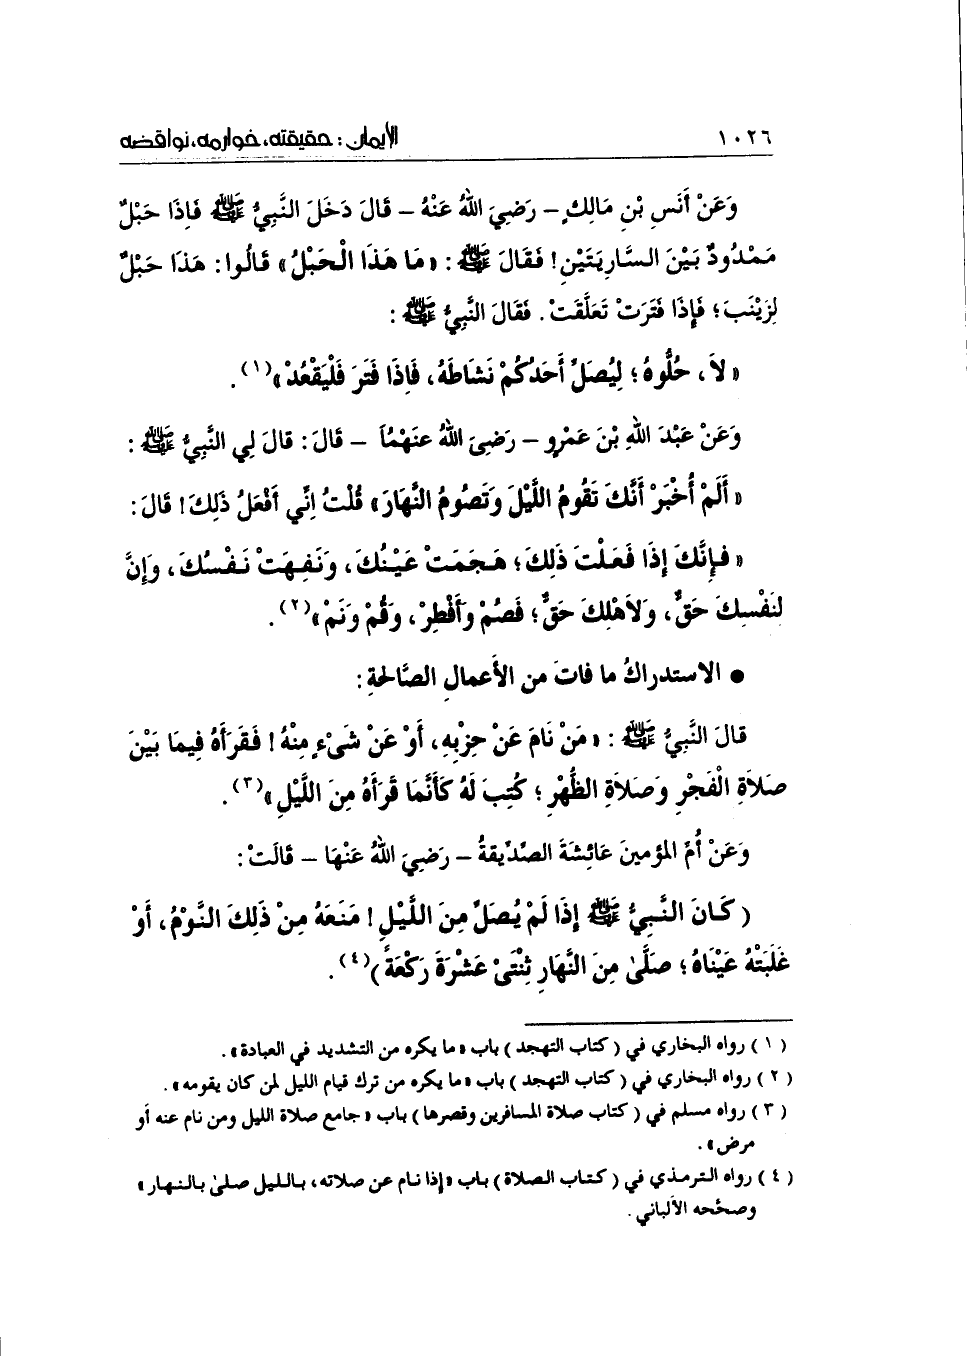 ١٠٢٦ الإيمان : حقيقته، خوارمه، نواقضه
وَعَنْ أَنَسِ بْنِ مَالِكٍ – رَضِيَ اللهُ عَنْهُ – قَالَ دَخَلَ النَّبِيُّ ﷺ فَإِذَا حَبْلٌ
مَمْدُودٌ بَيْنَ السَّارِيَتَيْنِ! فَقَالَ ﷺ : «مَا هَذَا الْحَبْلُ» قَالُوا: هَذَا حَبْلٌ
لِزَيْنَبَ؛ فَإِذَا فَتَرَتْ تَعَلَّقَتْ. فَقَالَ النَّبِيُّ ﷺ :
«لاَ، حُلُّوهُ؛ لِيُصَلِّ أَحَدُكُمْ نَشَاطَهُ، فَإِذَا فَتَرَ فَلْيَقْعُدْ»(١).
وَعَنْ عَبْدَ اللهِ بْنَ عَمْرٍو – رَضِيَ اللهُ عَنْهُمُا – قَالَ: قَالَ لِي النَّبِيُّ ﷺ :
«أَلَمْ أُخْبَرْ أَنَّكَ تَقُومُ اللَّيْلَ وَتَصُومُ النَّهَارَ» قُلْتُ إِنِّي أَفْعَلُ ذَلِكَ! قَالَ:
«فَإِنَّكَ إِذَا فَعَلْتَ ذَلِكَ؛ هَجَمَتْ عَيْنُكَ، وَنَفِهَتْ نَفْسُكَ، وَإِنَّ
لِنَفْسِكَ حَقٌّ، وَلاَهْلِكَ حَقٌّ؛ فَصُمْ وَأَفْطِرْ، وَقُمْ وَنَمْ»(٢).
● الاستدراكُ ما فاتَ من الأعمالِ الصَّالحةِ:
قالَ النَّبِيُّ ﷺ : «مَنْ نَامَ عَنْ حِزْبِهِ، أَوْ عَنْ شَيْءٍ مِنْهُ! فَقَرَأَهُ فِيمَا بَيْنَ
صَلاَةِ الْفَجْرِ وَصَلاَةِ الظُّهْرِ؛ كُتِبَ لَهُ كَأَنَّمَا قَرَأَهُ مِنَ اللَّيْلِ»(٣).
وَعَنْ أُمِّ المؤمنينَ عَائِشَةَ الصِّدِّيقةُ – رَضِيَ اللهُ عَنْهَا – قَالَتْ:
( كَانَ النَّبِيُّ ﷺ إِذَا لَمْ يُصَلِّ مِنَ اللَّيْلِ! مَنَعَهُ مِنْ ذَلِكَ النَّوْمُ، أَوْ
غَلَبَتْهُ عَيْنَاهُ؛ صَلَّىٰ مِنَ النَّهَارِ ثِنْتَىْ عَشْرَةَ رَكْعَةً)(٤).
( ١ ) رواه البخاري في ( كتاب التهجد ) باب «ما يكره من التشديد في العبادة».
( ٢ ) رواه البخاري في ( كتاب التهجد ) باب «ما يكره من ترك قيام الليل لمن كان يقومه».
( ٣ ) رواه مسلم في ( كتاب صلاة المسافرين وقصرها ) باب «جامع صلاة الليل ومن نام عنه أو
مرض».
( ٤ ) رواه الترمذي في ( كتاب الصلاة ) باب «إذا نام عن صلاته، بالليل صلىٰ بالنهار»
وصحَّحه الألباني.